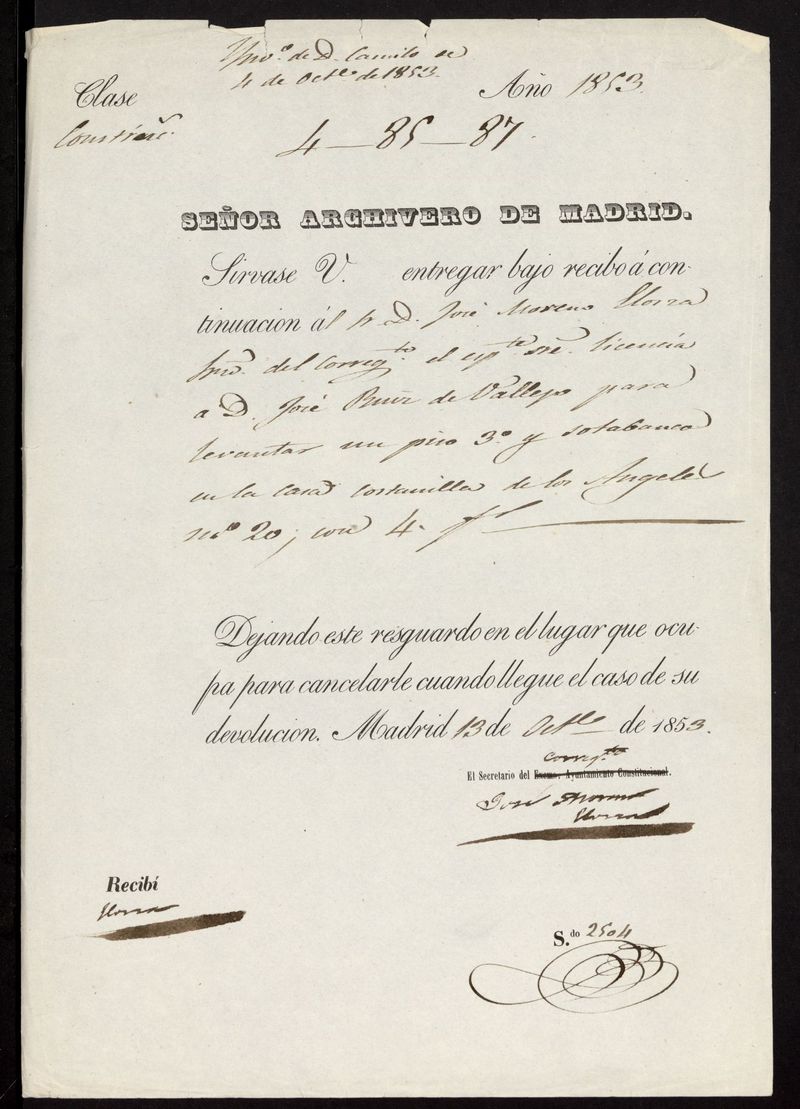 de D. Camilo
4 de Oct.e de 1853.
Clase
Año 1853.
Construc.
4 — 85 — 87.
SEÑOR ARCHIVERO DE MADRID.
Sirvase V. entregar bajo recibo á con-
tinuacion ál Sr. D. José Moreno Elorza
Srio. del Correg.to el esp.te sre. licencia
a D. José Ruiz de Vallejo para
levantar un piso 3.º y sotabanco
en la casa costanilla de los Angeles
n.º 20, con 4. fs
Dejando este resguardo en el lugar que ocu-
pa para cancelarle cuando llegue el caso de su
devolucion. Madrid 13 de Oct.e de 1853.
Correg.to
El Secretario del Excmo. Ayuntamiento Constitucional.
José Moreno
Elorza
Recibí
Elorza
S.do 2504